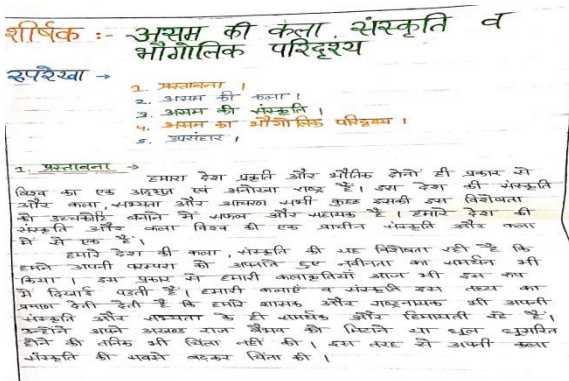 शीर्षक :- असम की कला, संस्कृति व
भौगोलिक परिदृश्य
रुपरेखा →
1. प्रस्तावना ।
2. असम की कला ।
3. असम की संस्कृति ।
4. असम का भौगोलिक परिदृश्य ।
5. उपसंहार ।
1. प्रस्तावना →
हमारा देश प्रकृति और भौतिक दोनों ही प्रकार से
विश्व का एक अद्भुत एवं अनोखा राष्ट्र है। इस देश की संस्कृति
और कला, सभ्यता और आचरण सभी कुछ इसकी इस विशेषता
को उच्चकोटि बनाने में सफल और सहायक है। हमारे देश की
संस्कृति और कला विश्व की एक प्राचीन संस्कृति और कला
में से एक है।
हमारे देश की कला, संस्कृति की यह विशेषता रही है कि
हमने अपनी परम्परा को अपनाते हुए नवीनता का समर्थन भी
किया। इस प्रकार से हमारी कलाकृतियां आज भी इस रूप
में दिखाई पड़ती हैं। हमारी कलाएं व संस्कृति इस तथ्य का
प्रमाण देती देती है कि हमारे शासक और राष्ट्रनायक भी अपनी
संस्कृति और सभ्यता के ही समर्थक और हिमायती रहे हैं।
उन्होंने अपने अखण्ड राज वैभव को मिटाने या धूल धुसरित
होने की तनिक भी चिंता नहीं की। इस तरह से अपनी कला
संस्कृति की सबसे बढ़कर चिंता की।